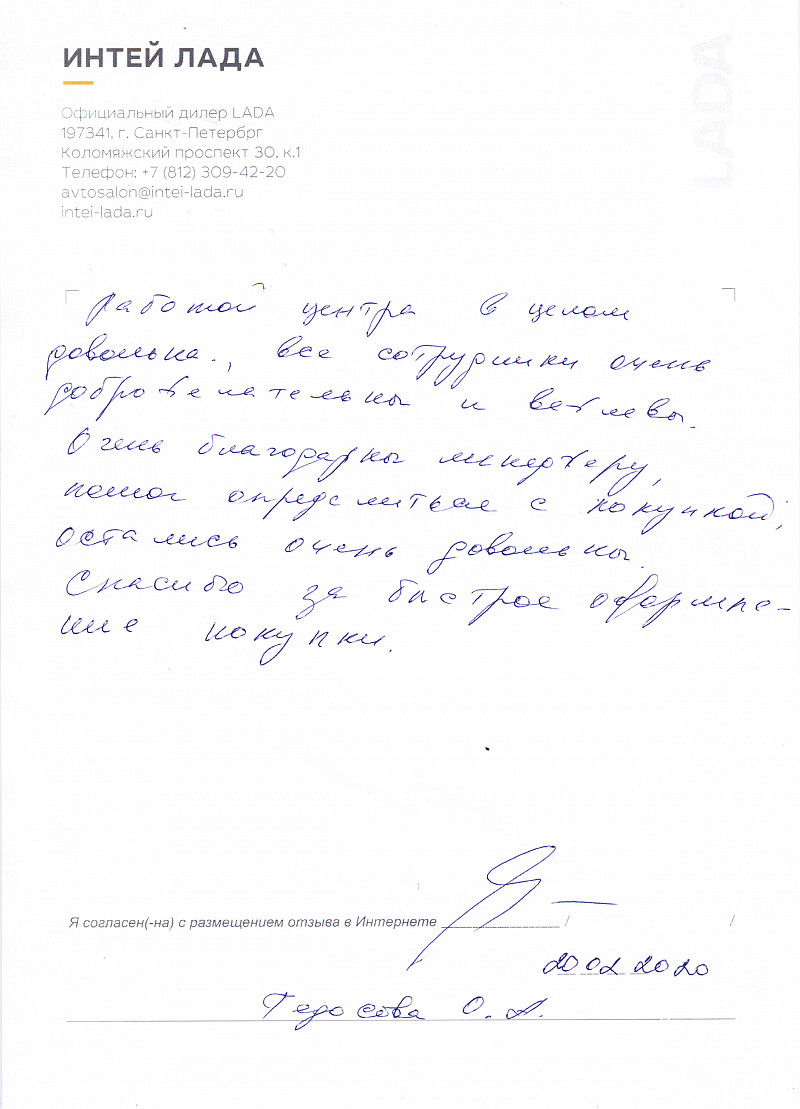 ИНТЕЙ ЛАДА
LADA
Официальный дилер LADA
197341, г. Санкт-Петербрг
Коломяжский проспект 30, к.1
Телефон: +7 (812) 309-42-20
avtosalon@intei-lada.ru
intei-lada.ru
Работой центра в целом
довольна., все сотрудники очень
доброжелательны и вежливы.
Очень благодарны менеджеру,
помог определиться с покупкой,
остались очень довольны.
Спасибо за быстрое оформле-
ние покупки.
Я согласен(-на) с размещением отзыва в Интернете / /
20 02 2020
О. А.